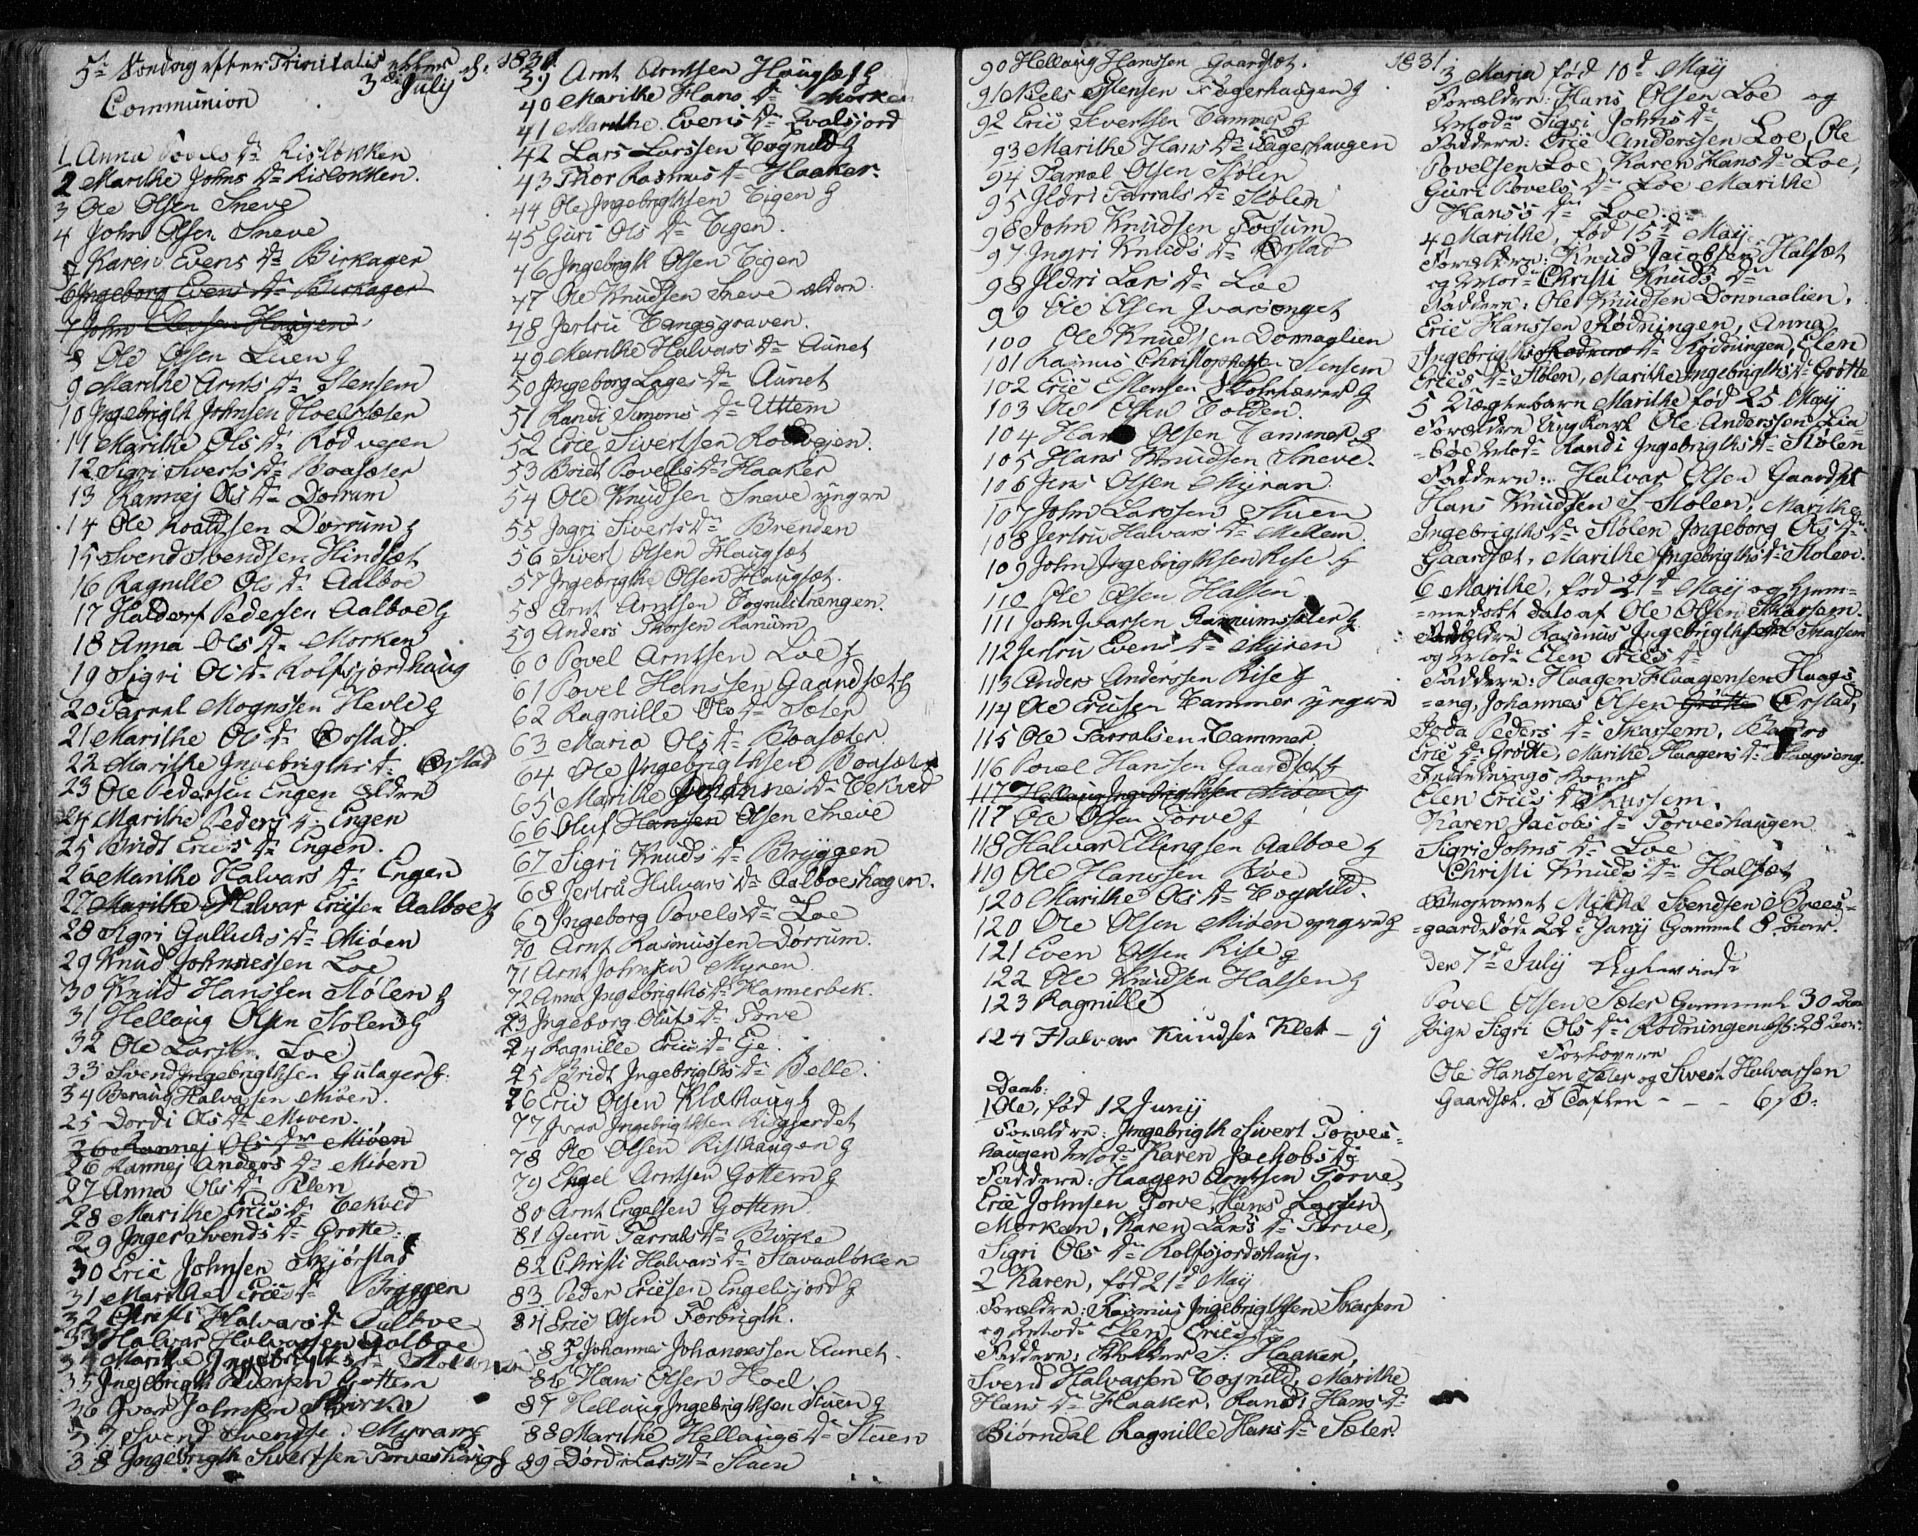 5te Søndag efter Trinitatis
3die July 1831
Communion
1 Anna Povels Dr Kisløkken
2 Marithe Johns Dr Kisløkken.
3 Ole Olsen Sneve
4 John Olsen Sneve
5 Karen Evens Dr Birkager
6 Ingeborg Evens Dr Birkager
7 John Haugen
8 Ole Olsen Luen g
9 Marithe Arnts Dr Stensem
10 Ingebrigth Johnsen Hoelsæter
11 Marithe Ols Dr Rødvegen
12 Sigri Siverts Dr Boasæter
13 Rannej Ols Dr Dørrum
14 Ole Dørrum g
15 Svend Svendsen Hindsæt
16 Ragnille Ols Dr Aalboe
17 Haldor Pedersen Aalboe g
18 Anna Ols Dr Morken
19 Sigri Ols Dr Rolfsjordhaug
20 Tarral Mogensen Hevle g
21 Marithe Ols Dr Ørstad
22 Marithe Ingebrigths Dr Ørstad
23 Ole Pedersen Engen Eldre
24 Marithe Peders Dr Engen
25 Bridt Erics Dr Engen.
26 Marithe Halvars Dr Engen
27 Marithe Halvar Ericsen Aalboe g
28 Sigri Gullichs Dr Miøen
29 Knud Johnnessen Loe
30 Knud Hanssen Stølen g
31 Hellaug Olsen Stølen g
32 Ole Larsen Loe
33 Svend Ingebrigthsen Gulager g.
34 Beraug Halvorsen Miøen.
25 Dordi Ols Dr Miøen.
26 Rannej Ols Dr Miøen
26 Rannej Anders Dr Miøen
27 Anna Ols Dr Pelen
28 Marithe Erics Dr Tekved
29 Inger Svends Dr Grøtte
30 Eric Johnsen Skjørstad
31 Marithe Erics Dr Bryggen
32 Christi Halvars Dr Aalboe
33 Halvar Halvarsen Aalboe
34 Marithe Ingebrigths Dr
35 Ingebrigth Gottem
36 Ivar Johnsen Birke
37 Svend Svendsen Myran g
38 Ingebrigth Sivertsen Torveshaug g
39 Arnt Arntsen Haugsæt g
40 Marithe Hans Dr Morken
41 Marithe Evens Dr Hvalsjord
42 Lars Larssen Tognild g
43 Thor Rasmus Dr Haaker.
44 Ole Ingebrigthsen Eigen g
45 Guri Ols Dr Eigen.
46 Ingebrigth Olsen Eigen
47 Ole Knudsen Sneve ældre.
48 Jertru Tangsgraven.
49 Marithe Halvars Dr Aunet
50 Ingeborg Lages Dr Aunet
51 Randi Simons Dr Uttem
52 Eric Sivertsen Rødvegen.
53 Bridt Povels Dr Haaker
54 Ole Knudsen Sneve yngre
55 Ingri Siverts Dr Brenden
56 Sivert Olsen Haugsæt
57 Ingebrigth Olsen Haugsæt.
58 Arnt Arntsen Tognildtrængen.
59 Anders Thorsen Ranum
60 Povel Arntsen Loe g
61 Povel Hanssen Gaardsæt g
62 Ragnille Ols Dr Sæter
63 Maria Ols Dr Boasæter.
64 Ole Ingebrigthsen Boasæter
65 Marithe Johannes Dr Tekved
66 Oluf Hansen Olsen Sneve
67 Sigri Knuds Dr Bryggen
68 Jertru Halvars Dr Aalboeshagen.
69 Ingeborg Povels Dr Loe
70 Arnt Rasmussen Dørrum.
71 Arnt Johnsen Myren
72 Anna Ingebrigths Dr Hamerbek.
23 Ingeborg Olufs Dr Torve
24 Ragnille Erics Dr Eje.
25 Bridt Ingebrigths Dr Belle.
76 Eric Olsen Klæthaug g
77 Ivar Ingebrigthsen Risgjerdet
78 Ole Olsen Risthaugen g
79 Engel Arntsen Gottem g
80 Arnt Engelsen Gottem
81 Guru Tarrals Dr Birke
82 Christi Halvars Dr Stavaaløkken
83 Peder Ericsen Engelsjord g
84 Eric Olsen Forbrigth.
85 Johannes Johannessen Aunet.
86 Hans Olsen Hoel
87 Hellaug Ingebrigthsen Stuen g
88 Marithe Hellaugs Dr Stuen
89 Dordi Lars Dr Stuen
90 Hellaug Hanssen Gaardsæt.
91 Niels Estensen Fagerhaugen g
92 Eric Sivertsen Tammer g
93 Marithe Hans Dr Fagerhaugen
94 Tarral Olsen Stølen
95 Ildri Tarrals Dr Stølen
96 John Knudsen Fossum
97 Ingri Knuds Dr Ørstad
98 Ildri Lars Dr Loe
99 Ole Olsen Ivarsenget
100 Ole Knudsen Donnaalien
101 Rasmus Christophersen Stensem
102 Eric Estensen g
103 Ole Olsen Tolden.
104 Hans Olsen Tammer g
105 Hans Knudsen Sneve.
106 Jens Olsen Myran
107 John Larssen Stuen
108 Jertru Halvars Dr Mellem.
109 John Ingebrigthsen Rise g
110 Ole Olsen Halsen
111 John Ivarsen Ranumssæter g
112 Jertru Evens Dr Myren
113 Anders Anderssen Rise g
114 Ole Ericsen Tammer yngre
115 Ole Tarralsen Tammer
116 Povel Hanssen Gaardsæt g
117 Hellaug Ingebrigthsen Stuen g
117 Ole Olsen Torve g
118 Halvar Ellingsen Aalboe g
119 Ole Hanssen Røe
120 Marithe Ols Dr Tognild.
120 Ole Olsen Miøen yngre g
121 Even Olsen Rise g
122 Ole Knudsen Halsen g
123 Ragnille
124 Halvar Knudsen Klet - g
Daab:
1 Ole, fød 12 Juny
Forældre: Ingebrigth Sivert Torves-
haugen Mod: Karen Jacobs Dr
Faddere: Haagen Arntsen Torve,
Eric Johnsen Torve, Hans Larsen
Morken, Karen Lars's Dr Torve,
Sigri Ols Dr Rolfsjordshaug.
2 Karen, fød 21d May
Forældre: Rasmus Ingebrigthsen Skarsem
og Mod: Elen Erics Dr
Faddere: Klokker S: Haaker,
Svend Halvarsen Tognild, Marithe
Hans Dr Haaker, Randi Hans Dr
Biørndal Ragnille Hans Dr Sæter.
1831.
3 Maria fød 10d May
Forældre: Hans Olsen Loe og
Mod: Sigri Johns Dr
Faddere: Eric Anderssen Loe, Ole
Povelsen Loe, Karen Hans Dr Loe,
Guri Povels Dr Loe Marithe
Hans's Dr Loe.
4 Marithe, fød 15d May
Forældre: Knud Jacobsen Halsæt
og Mod: Christi Knuds Dr
Faddere: Ole Knudsen Donnaalien,
Eric Hanssen Rødningen, Anna
Ingebrigths Dr Rødningen, Elen
Erics Dr Stølen, Marithe Ingebrigths Dr Grøtte
5 Uægtebarn Marithe fød 25 May
Forældre Ungkarl Ole Anderssen Lia-
-bøe Mod: Randi Ingebrigths Dr Stølen
Faddere: Halvar Olsen Gaardsæt
Hans Knudsen Stølen, Marithe
Ingebrigths Dr Stølen Ingeborg Ols Dr
Gaardsæt, Marithe Ingebrigths Dr Stølen.
6 Marithe, fød 21d May og hjem-
-medøbt dato af Ole Olsen Skarsem.
Forældre Rasmus Ingebrigthsen Skarsem
og Mod: Elen Erics Dr
Faddere: Haagen Haagensen Haags-
-eng, Johannes Olsen Grøtte Ørstad,
Goda Peders Dr Skarsem,
Erics Dr Grøtte, Marithe Haagens Dr Haagseng.
Indlednings Koner
Elen Erics Dr Skarsem.
Karen Jacobs Dr Torveshaugen
Sigri Johns Dr Loe
Christi Knuds Dr Halsæt
Begravet Mikkel Svendsen Boes-
-gaard død 22d Juny Gammel 8 Aar.
den 7de July Egteviede
Povel Olsen Sæter Gammel 30 Aar
Pige Sigri Ols Dr Rødningen 28 Aar.
Forlovere
Ole Hanssen Sæter og Sivert Halvarssen
Gaardsæt. - - -